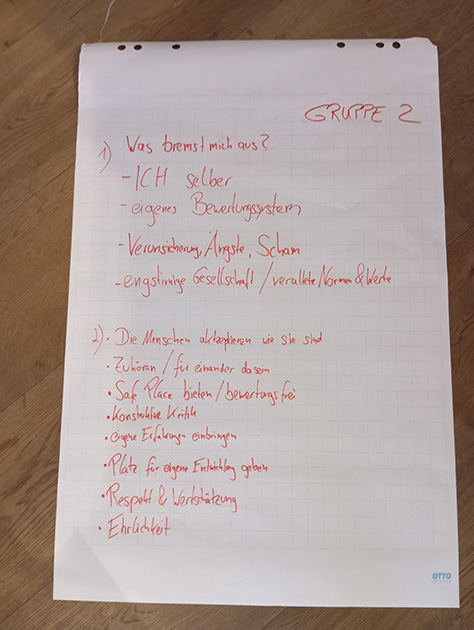 GRUPPE 2
1) Was bremst mich aus?
- ICH selber
- eigenes Bewertungssystem
- Verunsicherung, Ängste, Scham
- engstirnige Gesellschaft / veraltete Normen & Werte
2) • Die Menschen akzeptieren wie sie sind
• Zuhören / für einander dasein
• Safe Place bieten / bewertungsfrei
• Konstruktive Kritik
• eigene Erfahrungen einbringen
• Platz für eigene Entwicklung geben
• Respekt & Wertschätzung
• Ehrlichkeit
OTTO